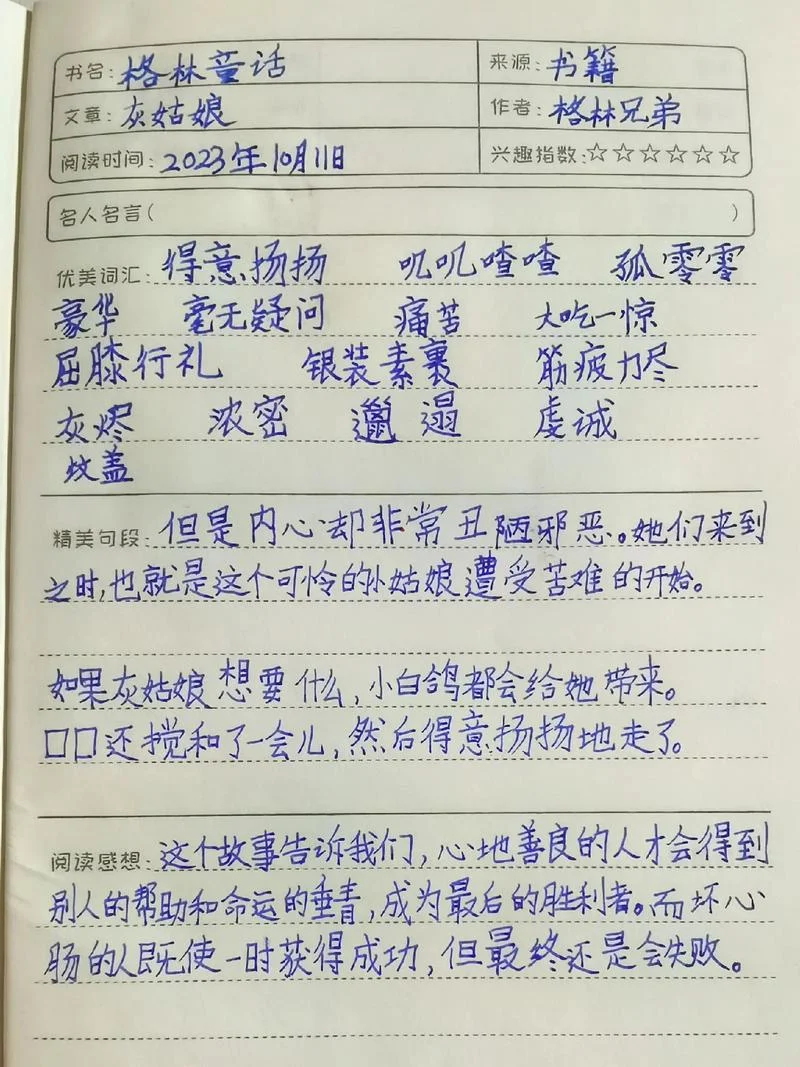 书名：格林童话 来源：书籍
文章：灰姑娘 作者：格林兄弟
阅读时间：2023年10月11日 兴趣指数：☆☆☆☆☆☆
名人名言（ ）
优美词汇：得意扬扬 叽叽喳喳 孤零零
豪华 毫无疑问 痛苦 大吃一惊
屈膝行礼 银装素裹 筋疲力尽
灰烬 浓密 邋遢 虔诚
坟盖
精美句段：但是内心却非常丑陋邪恶。她们来到
之时，也就是这个可怜的小姑娘遭受苦难的开始。
如果灰姑娘想要什么，小白鸽都会给她带来。
□□还搅和了一会儿，然后得意扬扬地走了。
阅读感想：这个故事告诉我们，心地善良的人才会得到
别人的帮助和命运的垂青，成为最后的胜利者。而坏心
肠的人既使一时获得成功，但最终还是会失败。